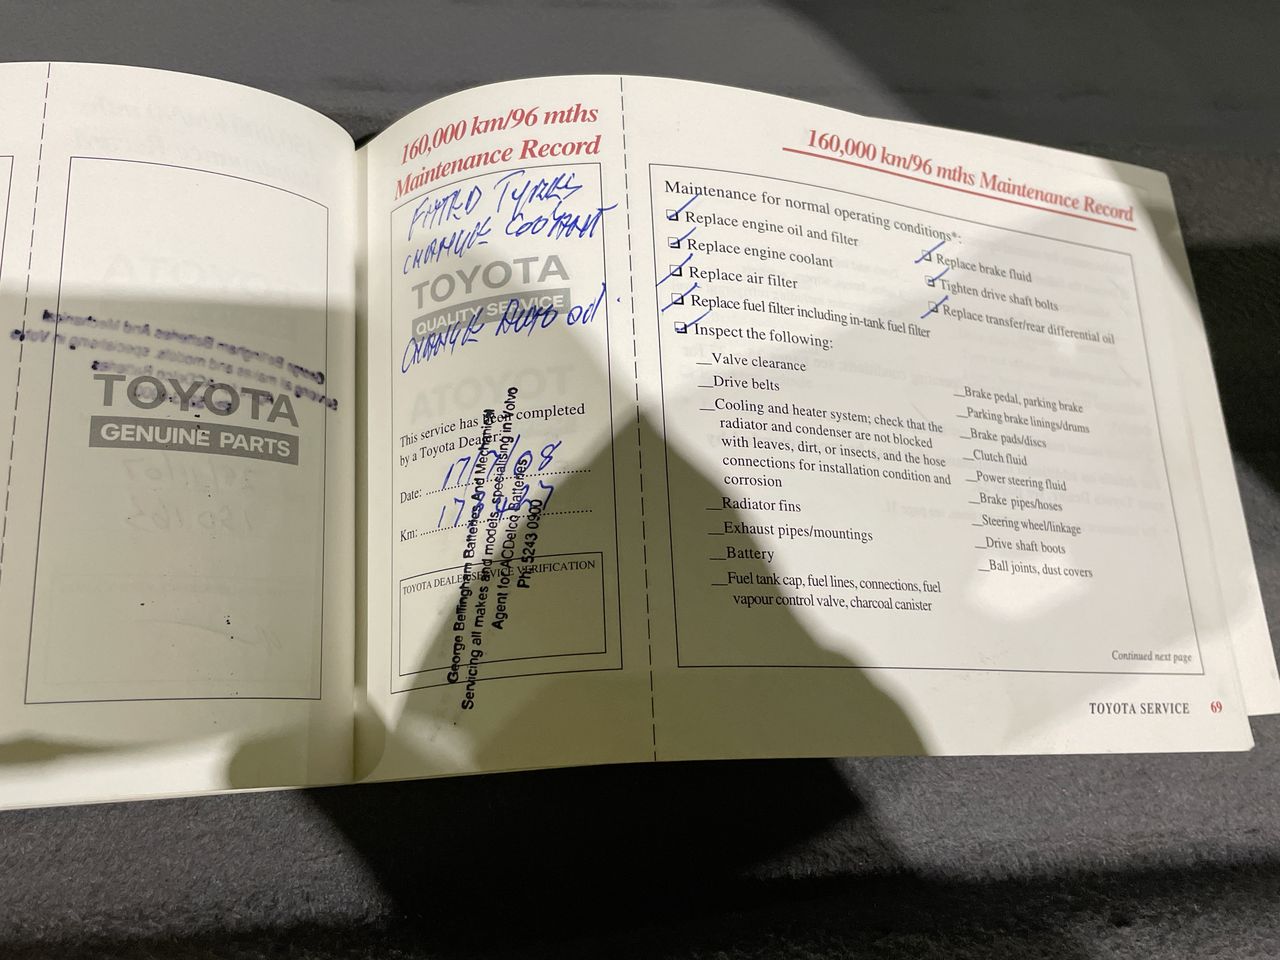 TOYOTA
GENUINE PARTS
160,000 km/96 mths
Maintenance Record
FITTED TYRES
CHANGE COOLANT
TOYOTA
QUALITY SERVICE
CHANGE AUTO oil.
This service has been completed
by a Toyota Dealer:
Date:
Km:
TOYOTA DEALER SERVICE VERIFICATION
George Bellingham Batteries And Mechanical
Servicing all makes and models, specialising in Volvo
Agent for ACDelco Batteries
Ph: 5243 0900
160,000 km/96 mths Maintenance Record
Maintenance for normal operating conditions*:
Replace engine oil and filter
Replace engine coolant
Replace air filter
Replace fuel filter including in-tank fuel filter
Inspect the following:
__Valve clearance
__Drive belts
__Cooling and heater system; check that the
radiator and condenser are not blocked
with leaves, dirt, or insects, and the hose
connections for installation condition and
corrosion
__Radiator fins
__Exhaust pipes/mountings
__Battery
__Fuel tank cap, fuel lines, connections, fuel
vapour control valve, charcoal canister
Replace brake fluid
Tighten drive shaft bolts
Replace transfer/rear differential oil
__Brake pedal, parking brake
__Parking brake linings/drums
__Brake pads/discs
__Clutch fluid
__Power steering fluid
__Brake pipes/hoses
__Steering wheel/linkage
__Drive shaft boots
__Ball joints, dust covers
Continued next page
TOYOTA SERVICE 69